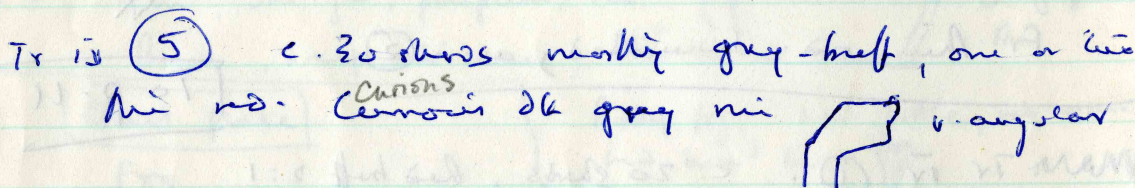 Tr is (5) c. 20 sherds mostly grey-buff, one or two
thin red. Curious dk grey rim v. angular
Curious